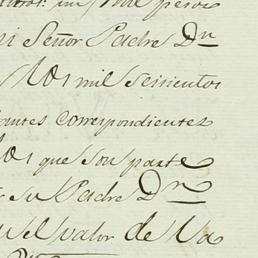 un mil pesos
Señor Padre Dn
Dos mil seisientos
antes correspondientes
Dos que son parte
su Padre Dn
el valor de la